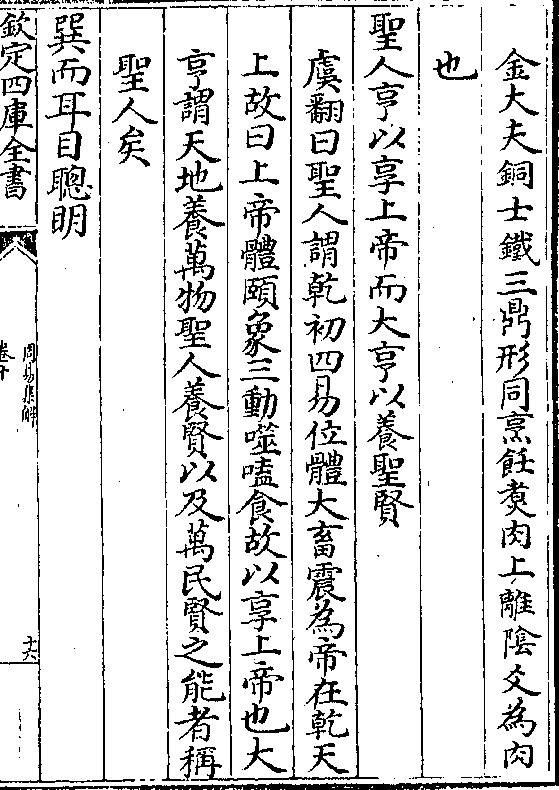 金大夫銅士鐵三鼎形同烹飪煑肉上離陰爻為肉
也
聖人亨以享上帝而大亨以養聖賢
虞翻曰聖人謂乾初四易位體大畜震為帝在乾天
上故曰上帝體頤象三動噬嗑食故以享上帝也大
亨謂天地養萬物聖人養賢以及萬民賢之能者稱
聖人矣
巽而耳目聰明
欽定四庫全書
周易集解
卷十
十六